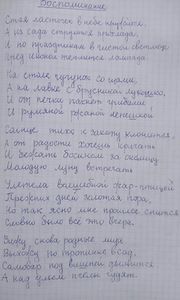 Воспоминание
Стая ласточек в небе кружится,
А из сада струится прохлада,
И по праздникам в чистой светлице
Пред иконой теплится лампада.
На столе
А на лавке с брусникой лукошко,
И от печки пахнет грибами
И румяной ржаной лепёшкой
Солнце тихо к закату клонится,
А от радости хочешь кричать
И бежать босиком за околицу
Молодую луну встречать
Улетела волшебной жар-птицей
Прежних дней золотая пора,
Но так ясно мне прошлое снится
Словно было всё это вчера.
Вижу, снова родные лица
Выхожу по тропинке в сад,
Самовар под вишней дымится
А над ульем пчёлы гудят.